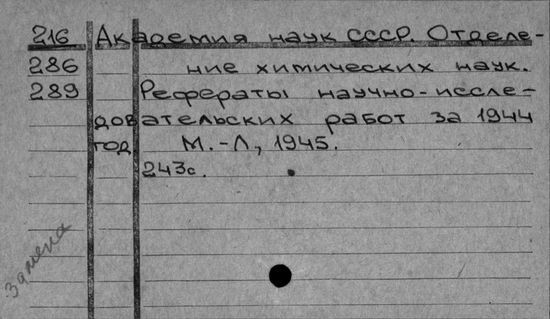 216 Академия наук СССР. Отделе-
286 ние химических наук.
289 Рефераты научно-иссле-
довательских работ за 1944
год М.-Л., 1945.
243с.
Замена